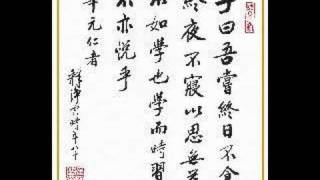 子曰吾嘗終日不食
終夜不寢以思無益
不如學也學而時習
不亦悅乎
元仁者
釋淨空時年八十